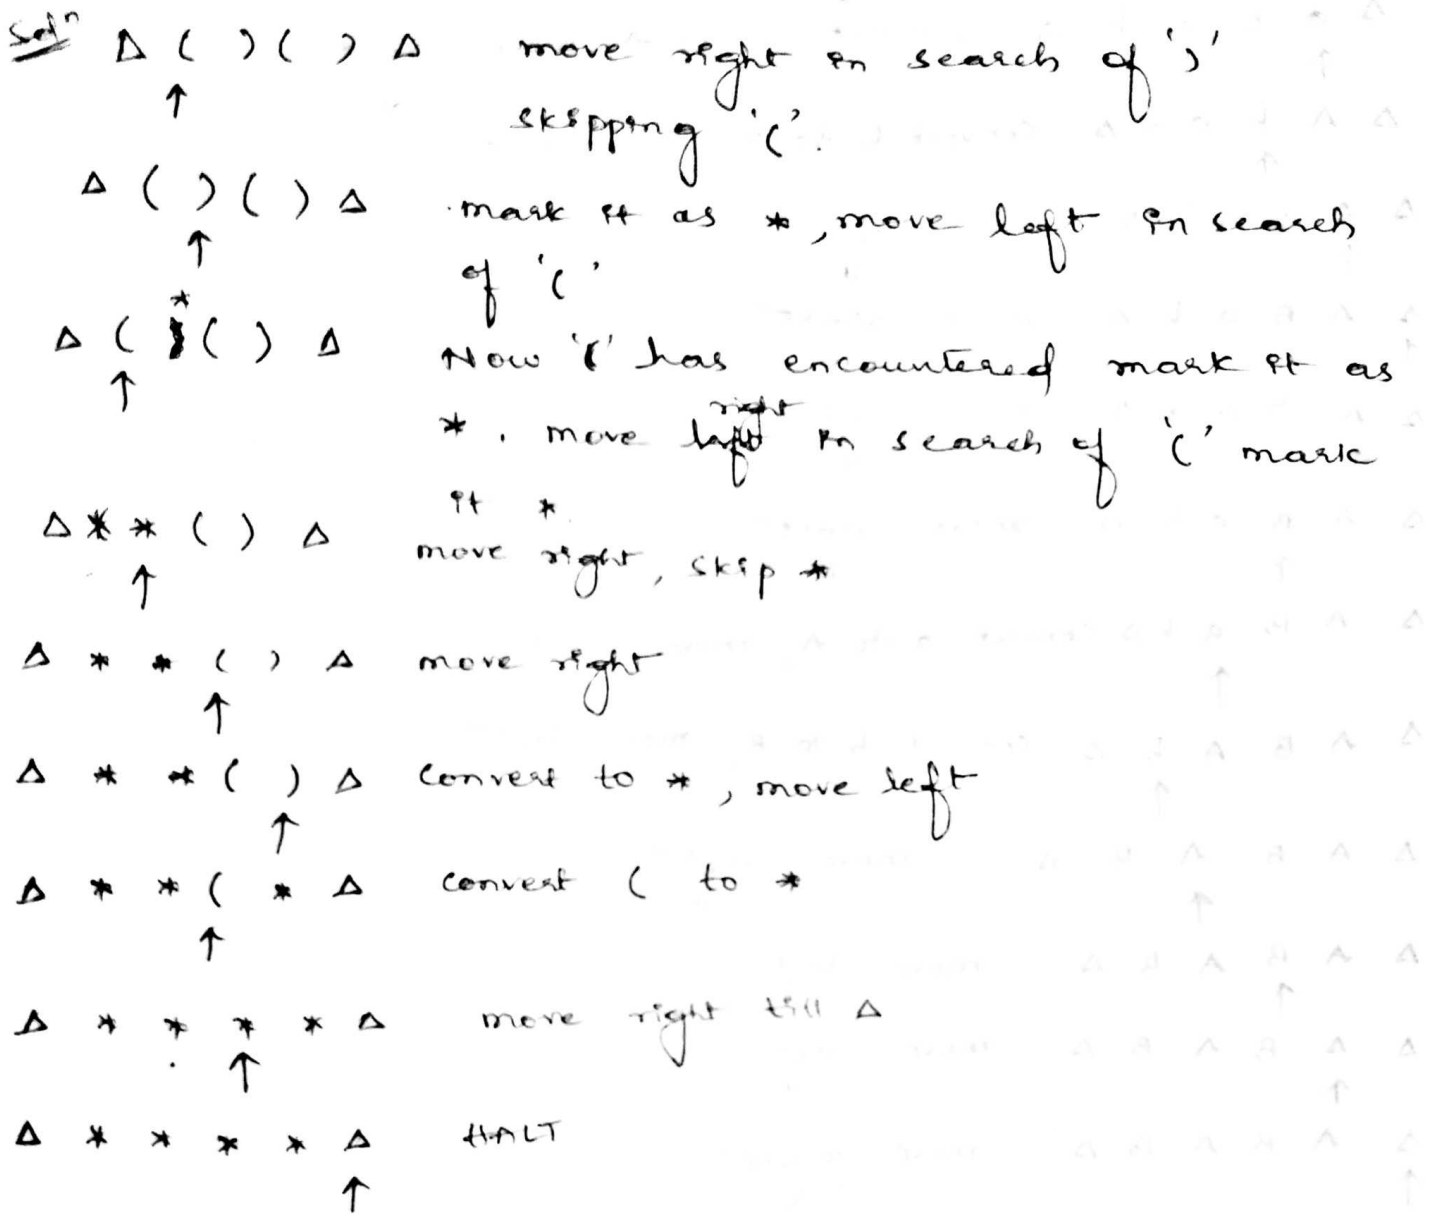 Solⁿ Δ ( ) ( ) Δ move right in search of ')'
↑ skipping '('.
Δ ( ) ( ) Δ mark it as *, move left in search
↑ of '('
*
Δ ( ) ( ) Δ Now '(' has encountered mark it as
right
↑ *. move left in search of '(' mark
it *
Δ * * ( ) Δ move right, skip *
↑
Δ * * ( ) Δ move right
↑
Δ * * ( ) Δ convert to *, move left
↑
Δ * * ( * Δ convert ( to *
↑
Δ * * * * Δ move right till Δ
↑
Δ * * * * Δ HALT
↑